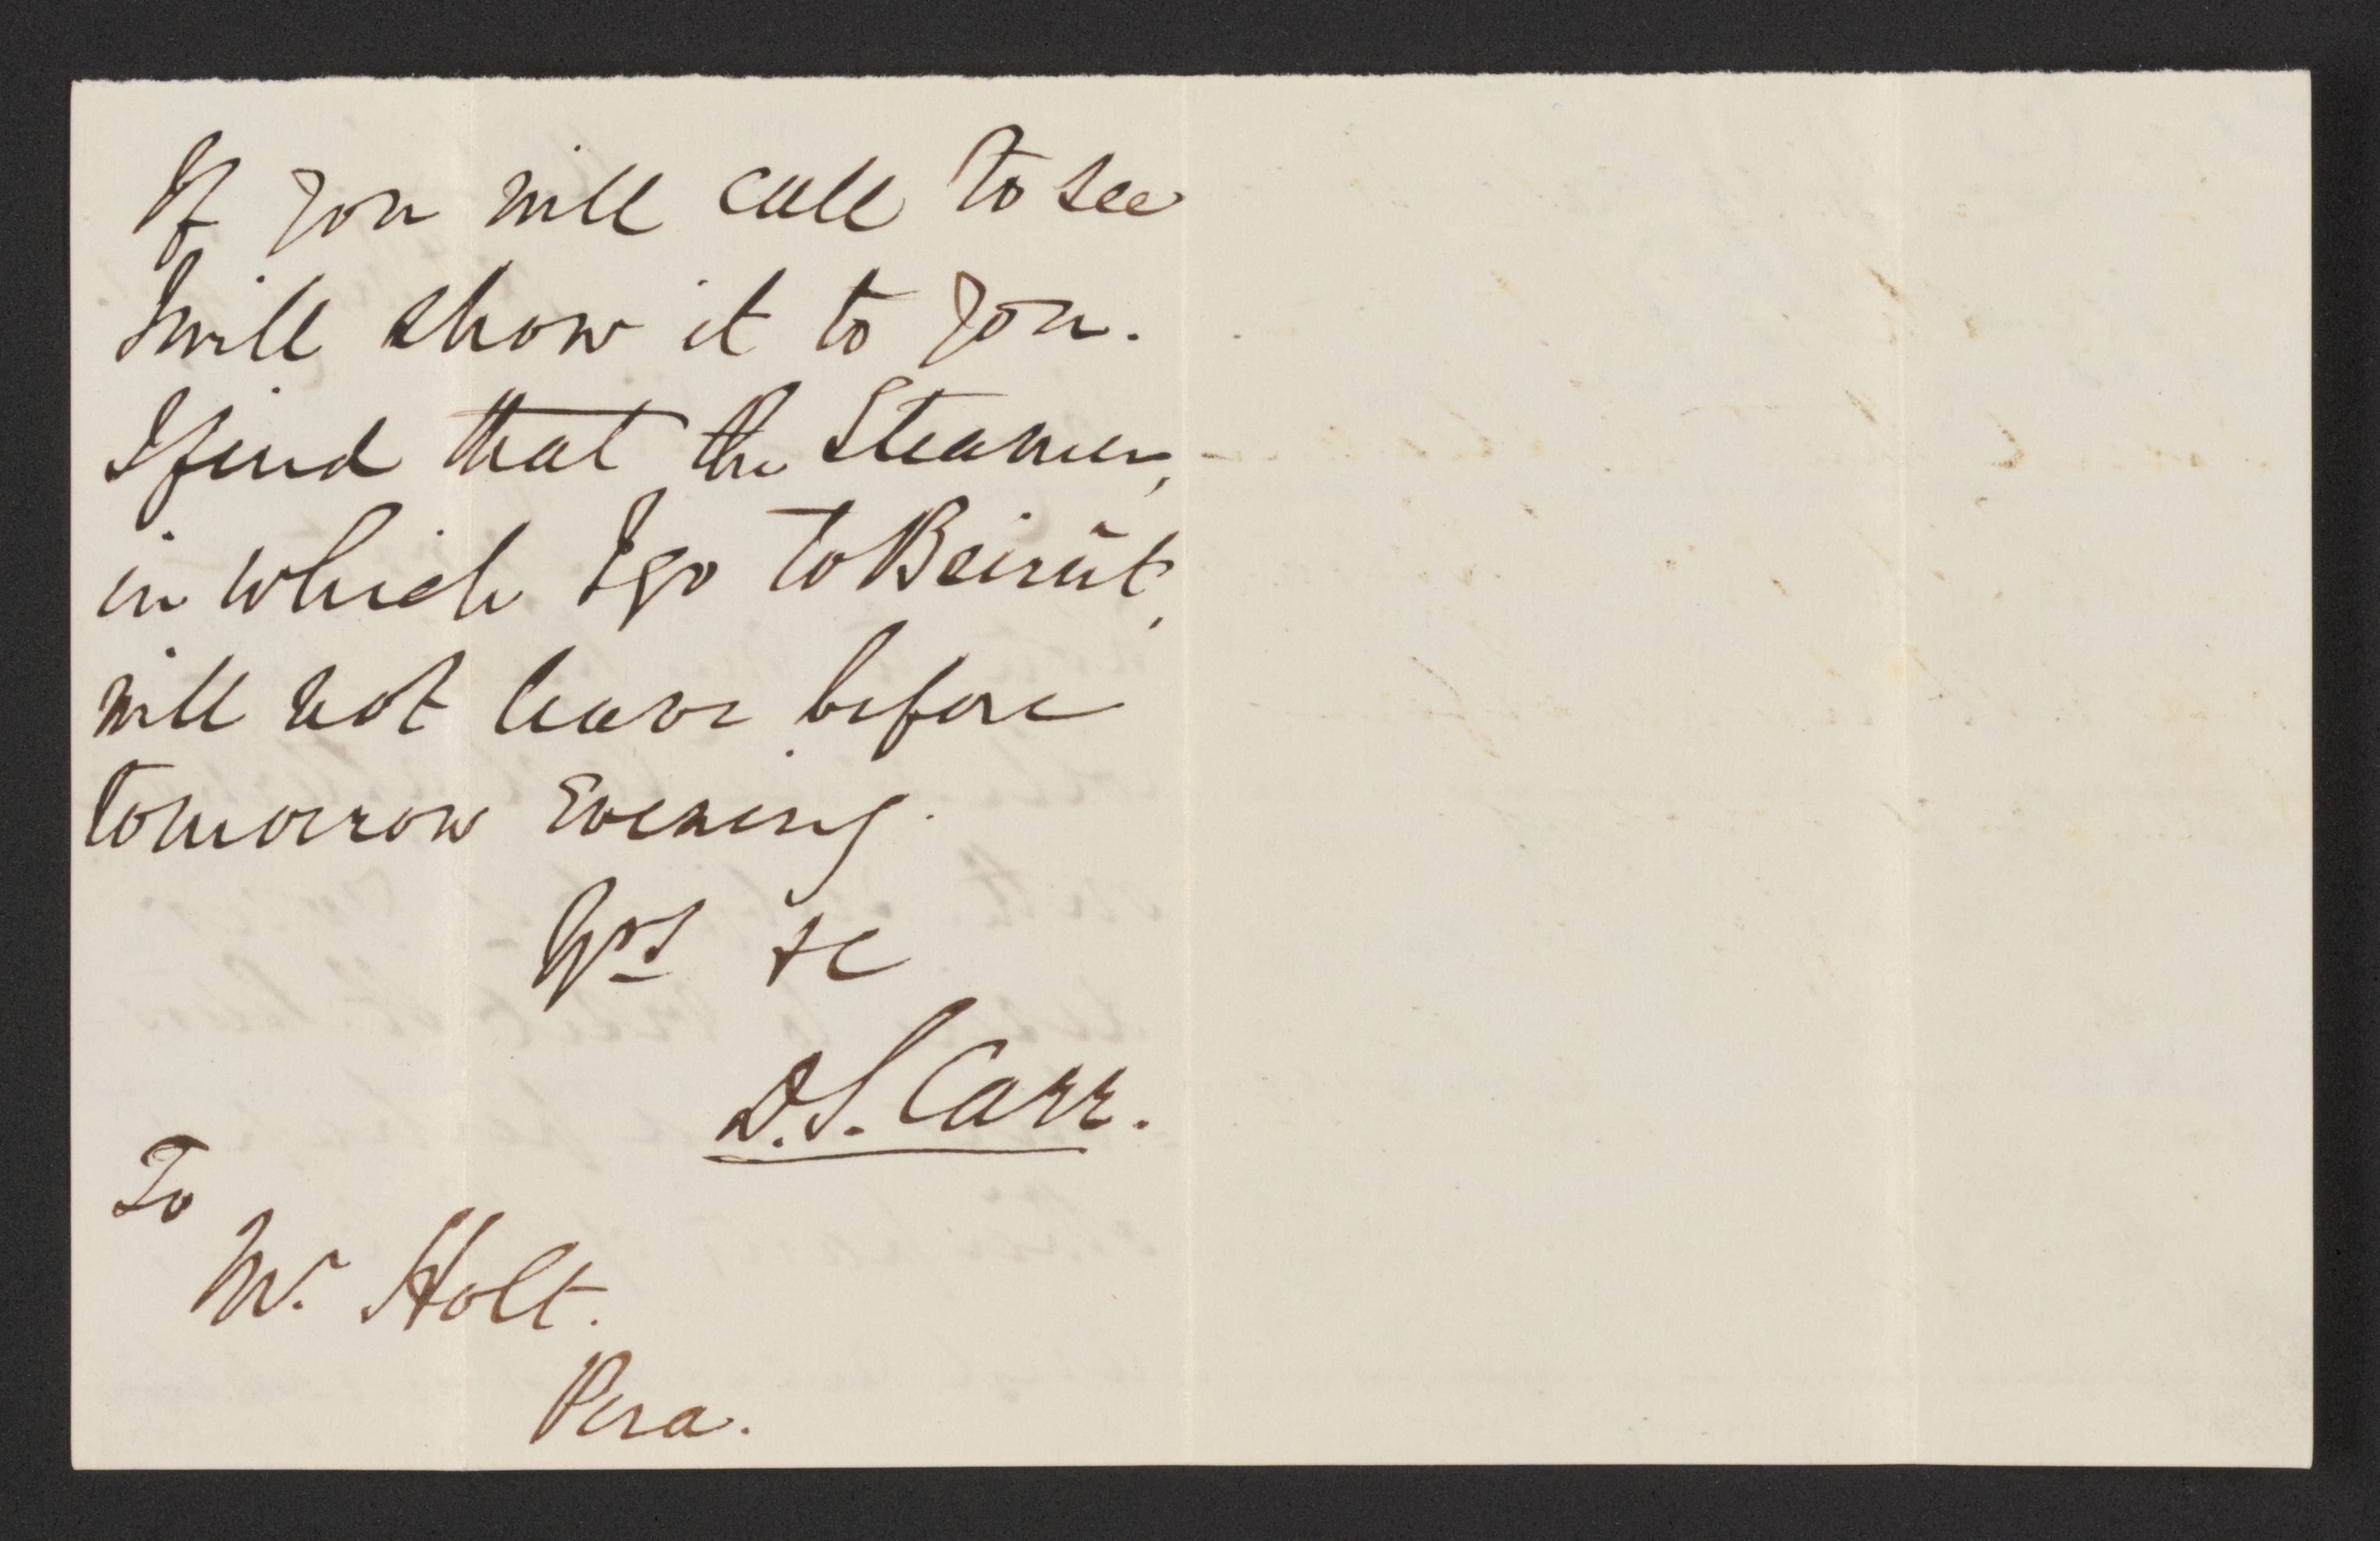 If you will call to see
I will show it to you.
I find that the Steamer,
in which I go to Beirût,
will not leave before
tomorrow Evening.
Yrs &c
D. S. Carr.
To
Mr. Holt.
Pera.